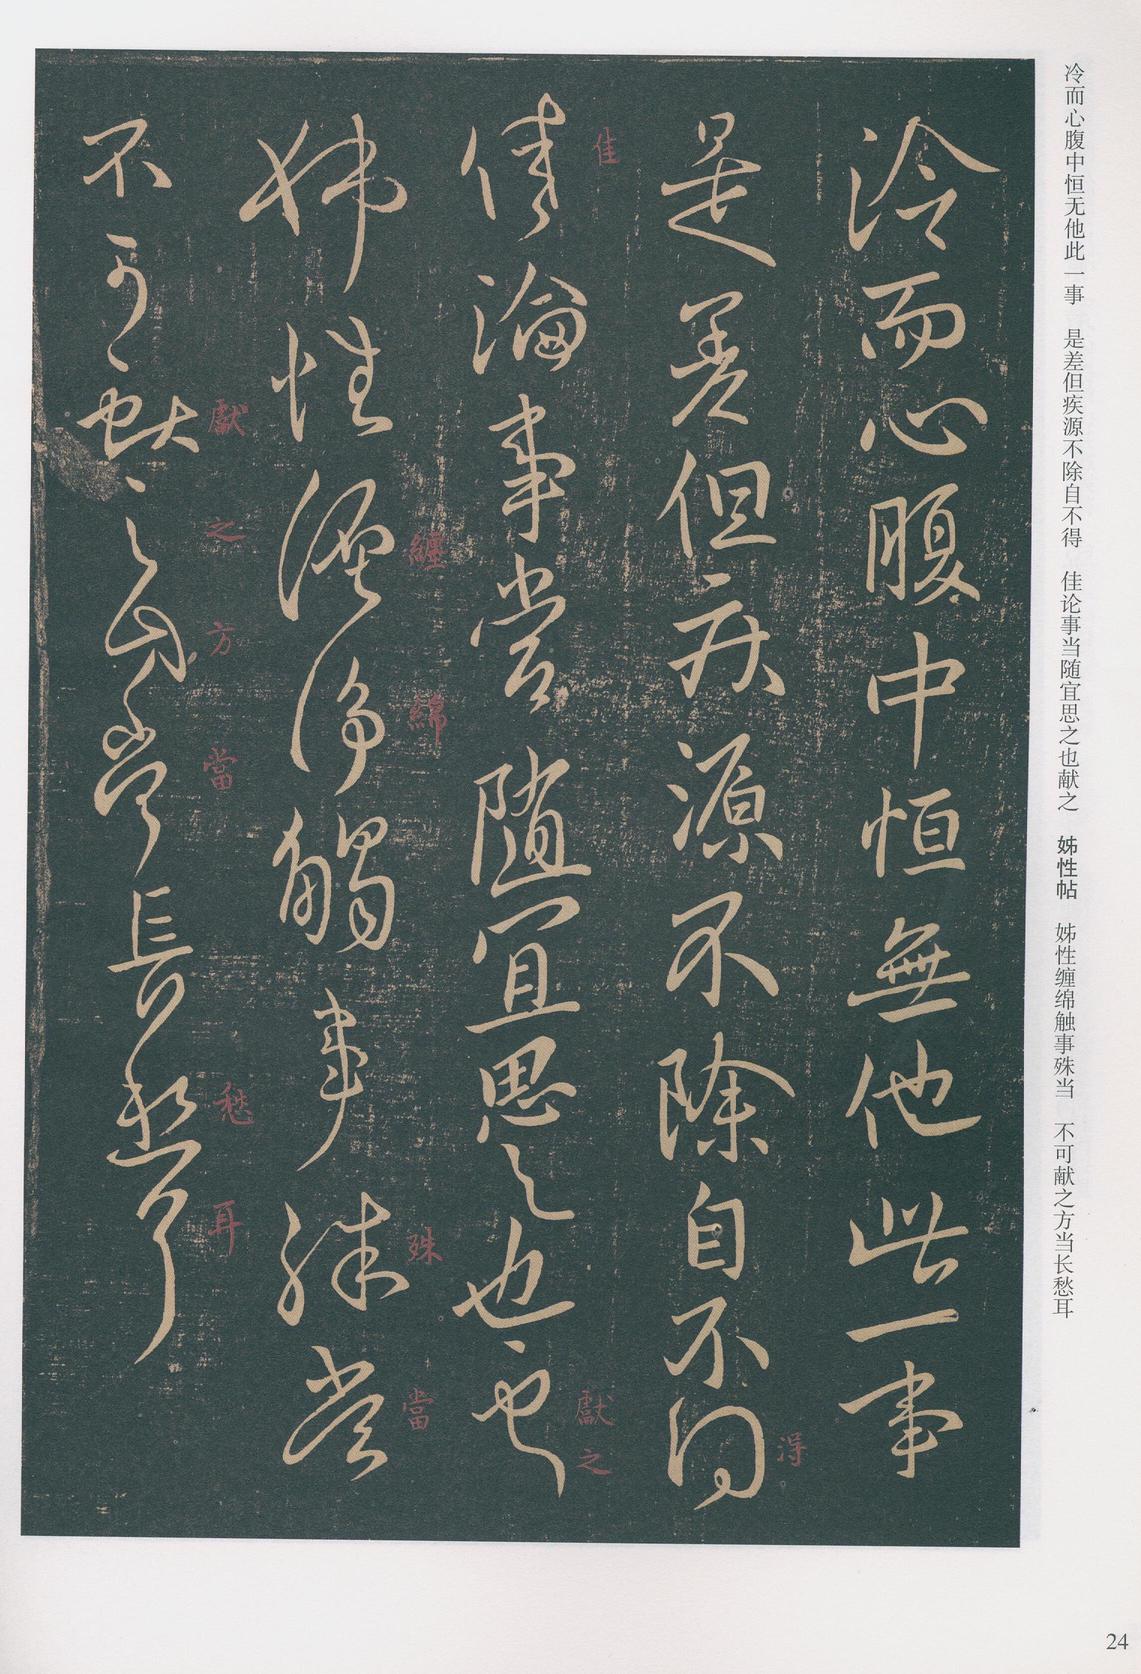 冷而心腹中恒無他此一事
是差但疾源不除自不得
得
佳論事當随宜思之也獻之
佳
獻之
姊性纏綿觸事殊當
纏
綿
殊
當
不可獻之方當長愁耳
獻
之
方
當
愁
耳
冷而心腹中恒无他此一事 是差但疾源不除自不得 佳论事当随宜思之也献之 姊性帖 姊性缠绵触事殊当 不可献之方当长愁耳
24